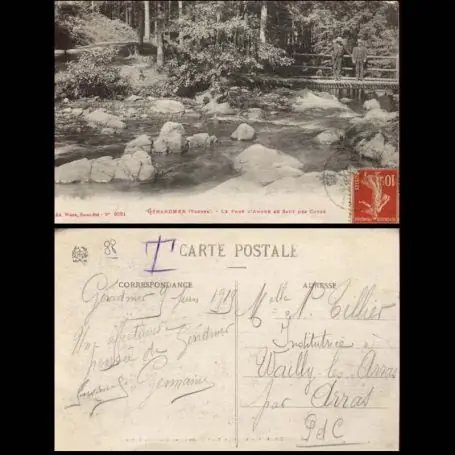 GÉRARDMER (VOSGES). - LE PONT D'AMOUR AU SAUT DES CUVES
10
88
T
CARTE POSTALE
CORRESPONDANCE
ADRESSE
Gérardmer 9 Juin 1919
Une affectueuse
pensée de Gérardmer
Germaine
Melle P. Tillier
Institutrice à
Wailly les Arras
par Arras
PdC